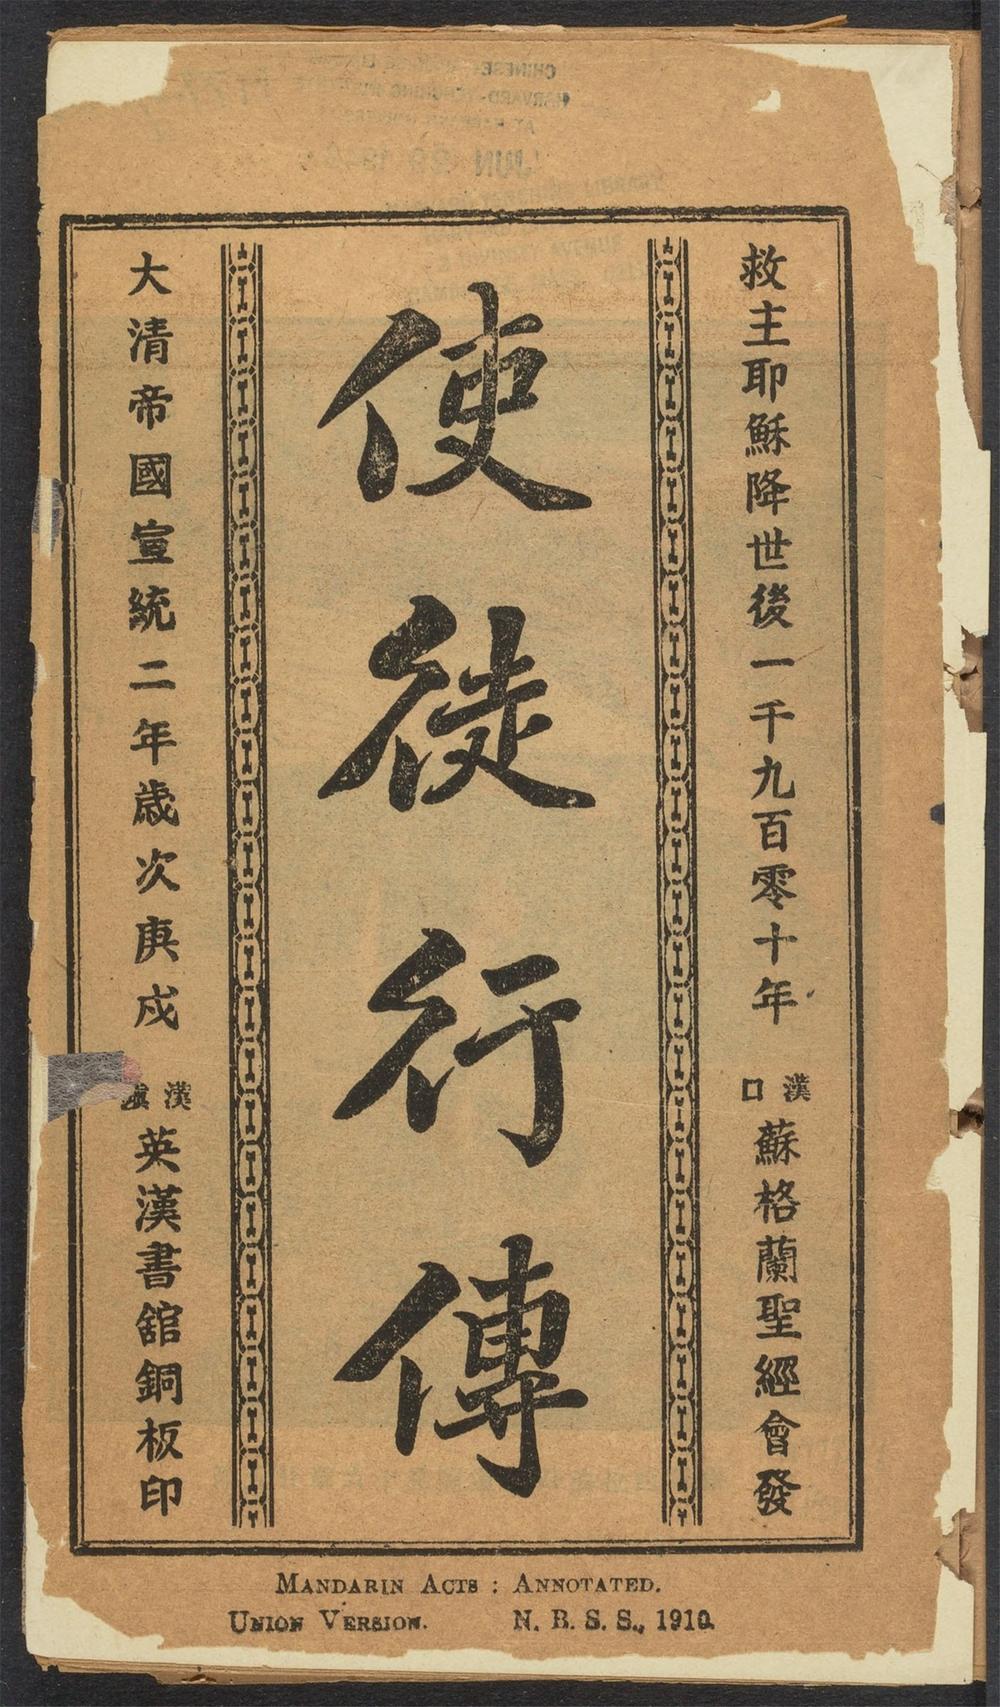 救主耶穌降世後一千九百零十年 漢口 蘇格蘭聖經會發
使徒行傳
大清帝國宣統二年歲次庚戌 漢鎮 英漢書舘銅板印
MANDARIN ACTS : ANNOTATED.
UNION VERSION. N. B. S. S., 1910.